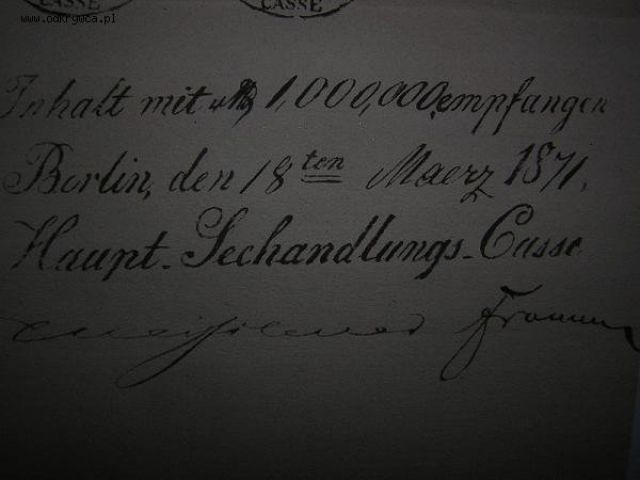 CASSE CASSE
www.odkrywca.pl
Inhalt mit 1,000,000 empfangen
Berlin, den 18ten Maerz 1871.
Haupt-Seehandlungs-Casse